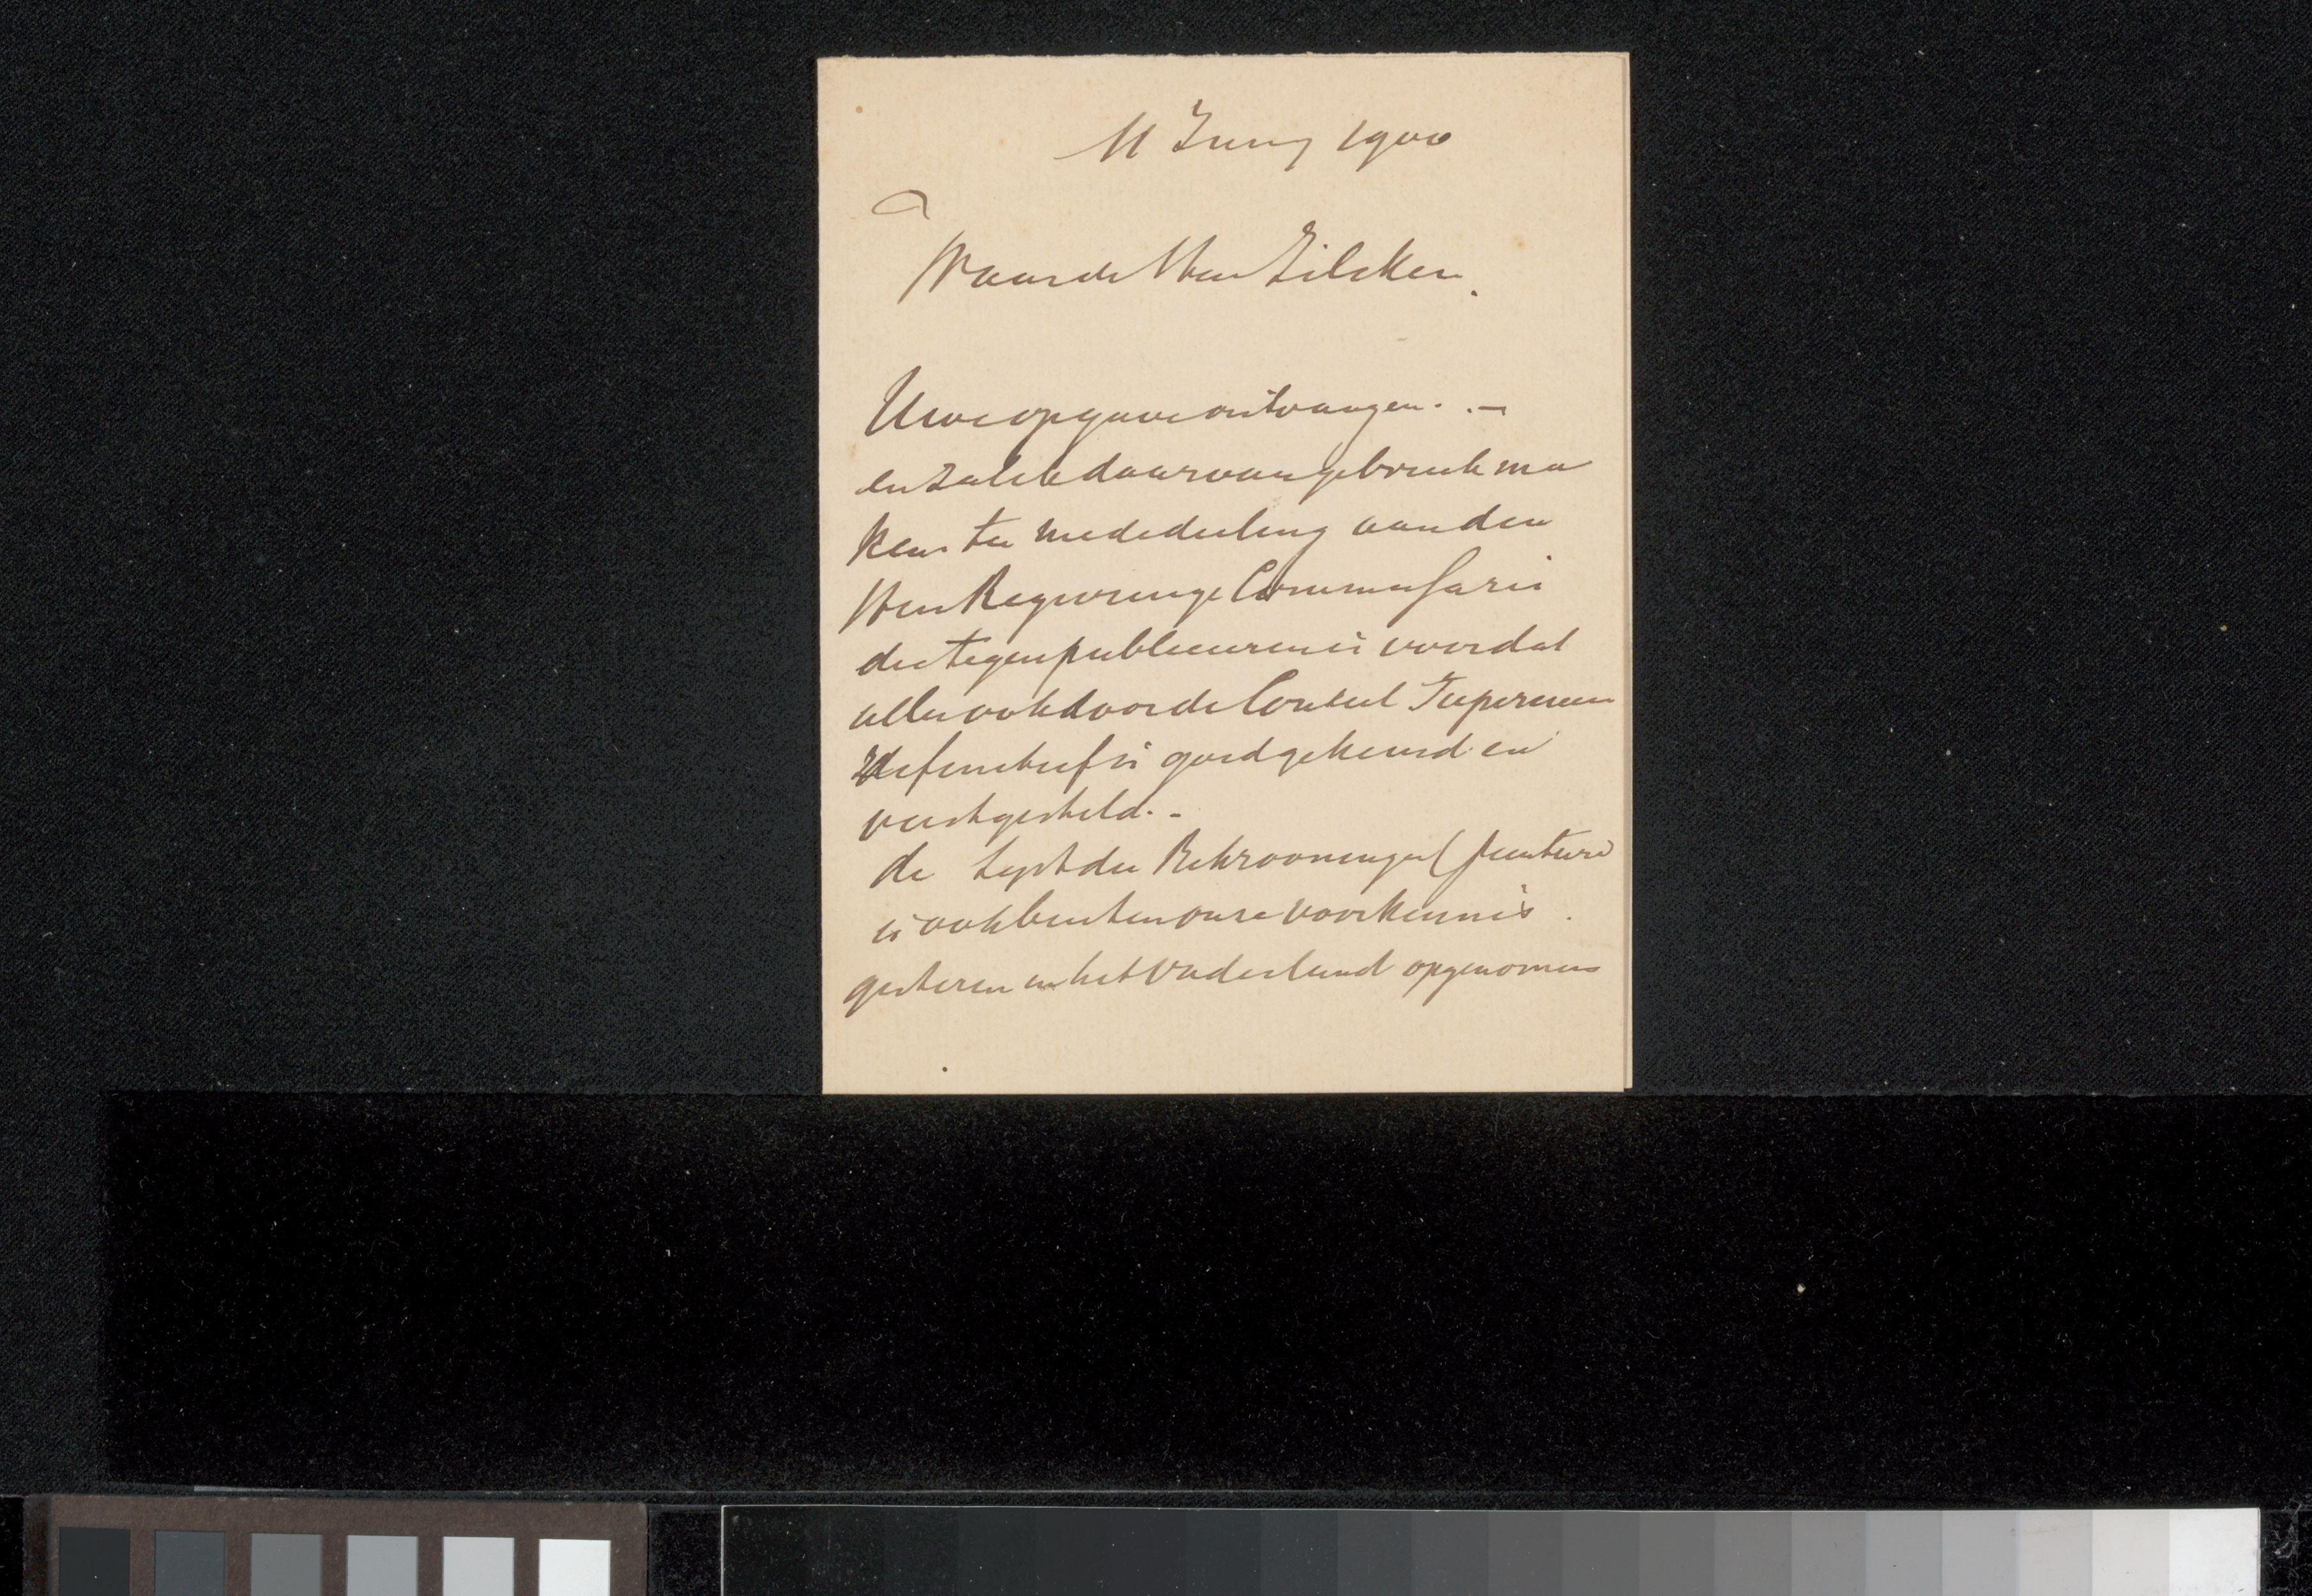 11 Juny 1900
Waarde Heer Zilcken.
Uwe opgave ontvangen. -
en zal ik daarvan gebruik ma
ken ter mededeeling aan den
Heer Regeerings Commissaris
die tegen publiceeren is voordat
alles ook door de Conseil Superieur
definitief is goedgekeurd en
vastgesteld. -
de Lyst der Bekrooningen (peinture
is ook buiten onze voorkennis
gisteren in het Vaderland opgenomen